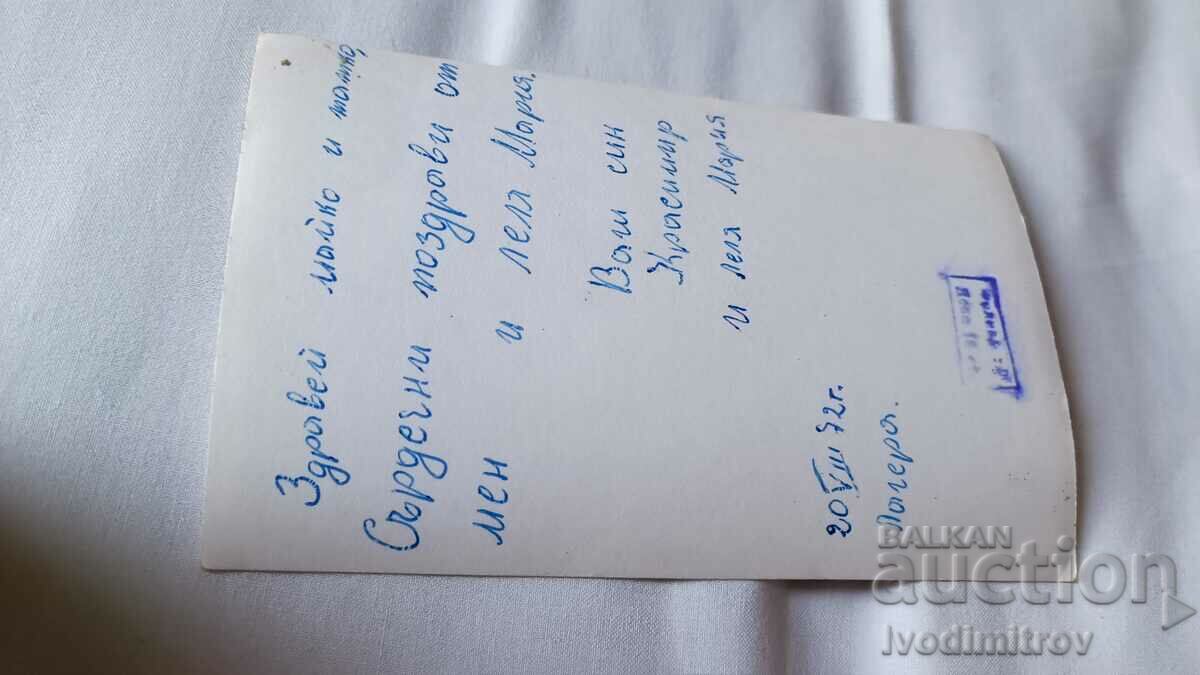 Здравей майко и татко,
Сърдечни поздрави от
мен и леля Мария.
Ваш син
Красимир
и леля Мария
20 VIII 72г.
Лагера.
BALKAN
auction
Ivodimitrov